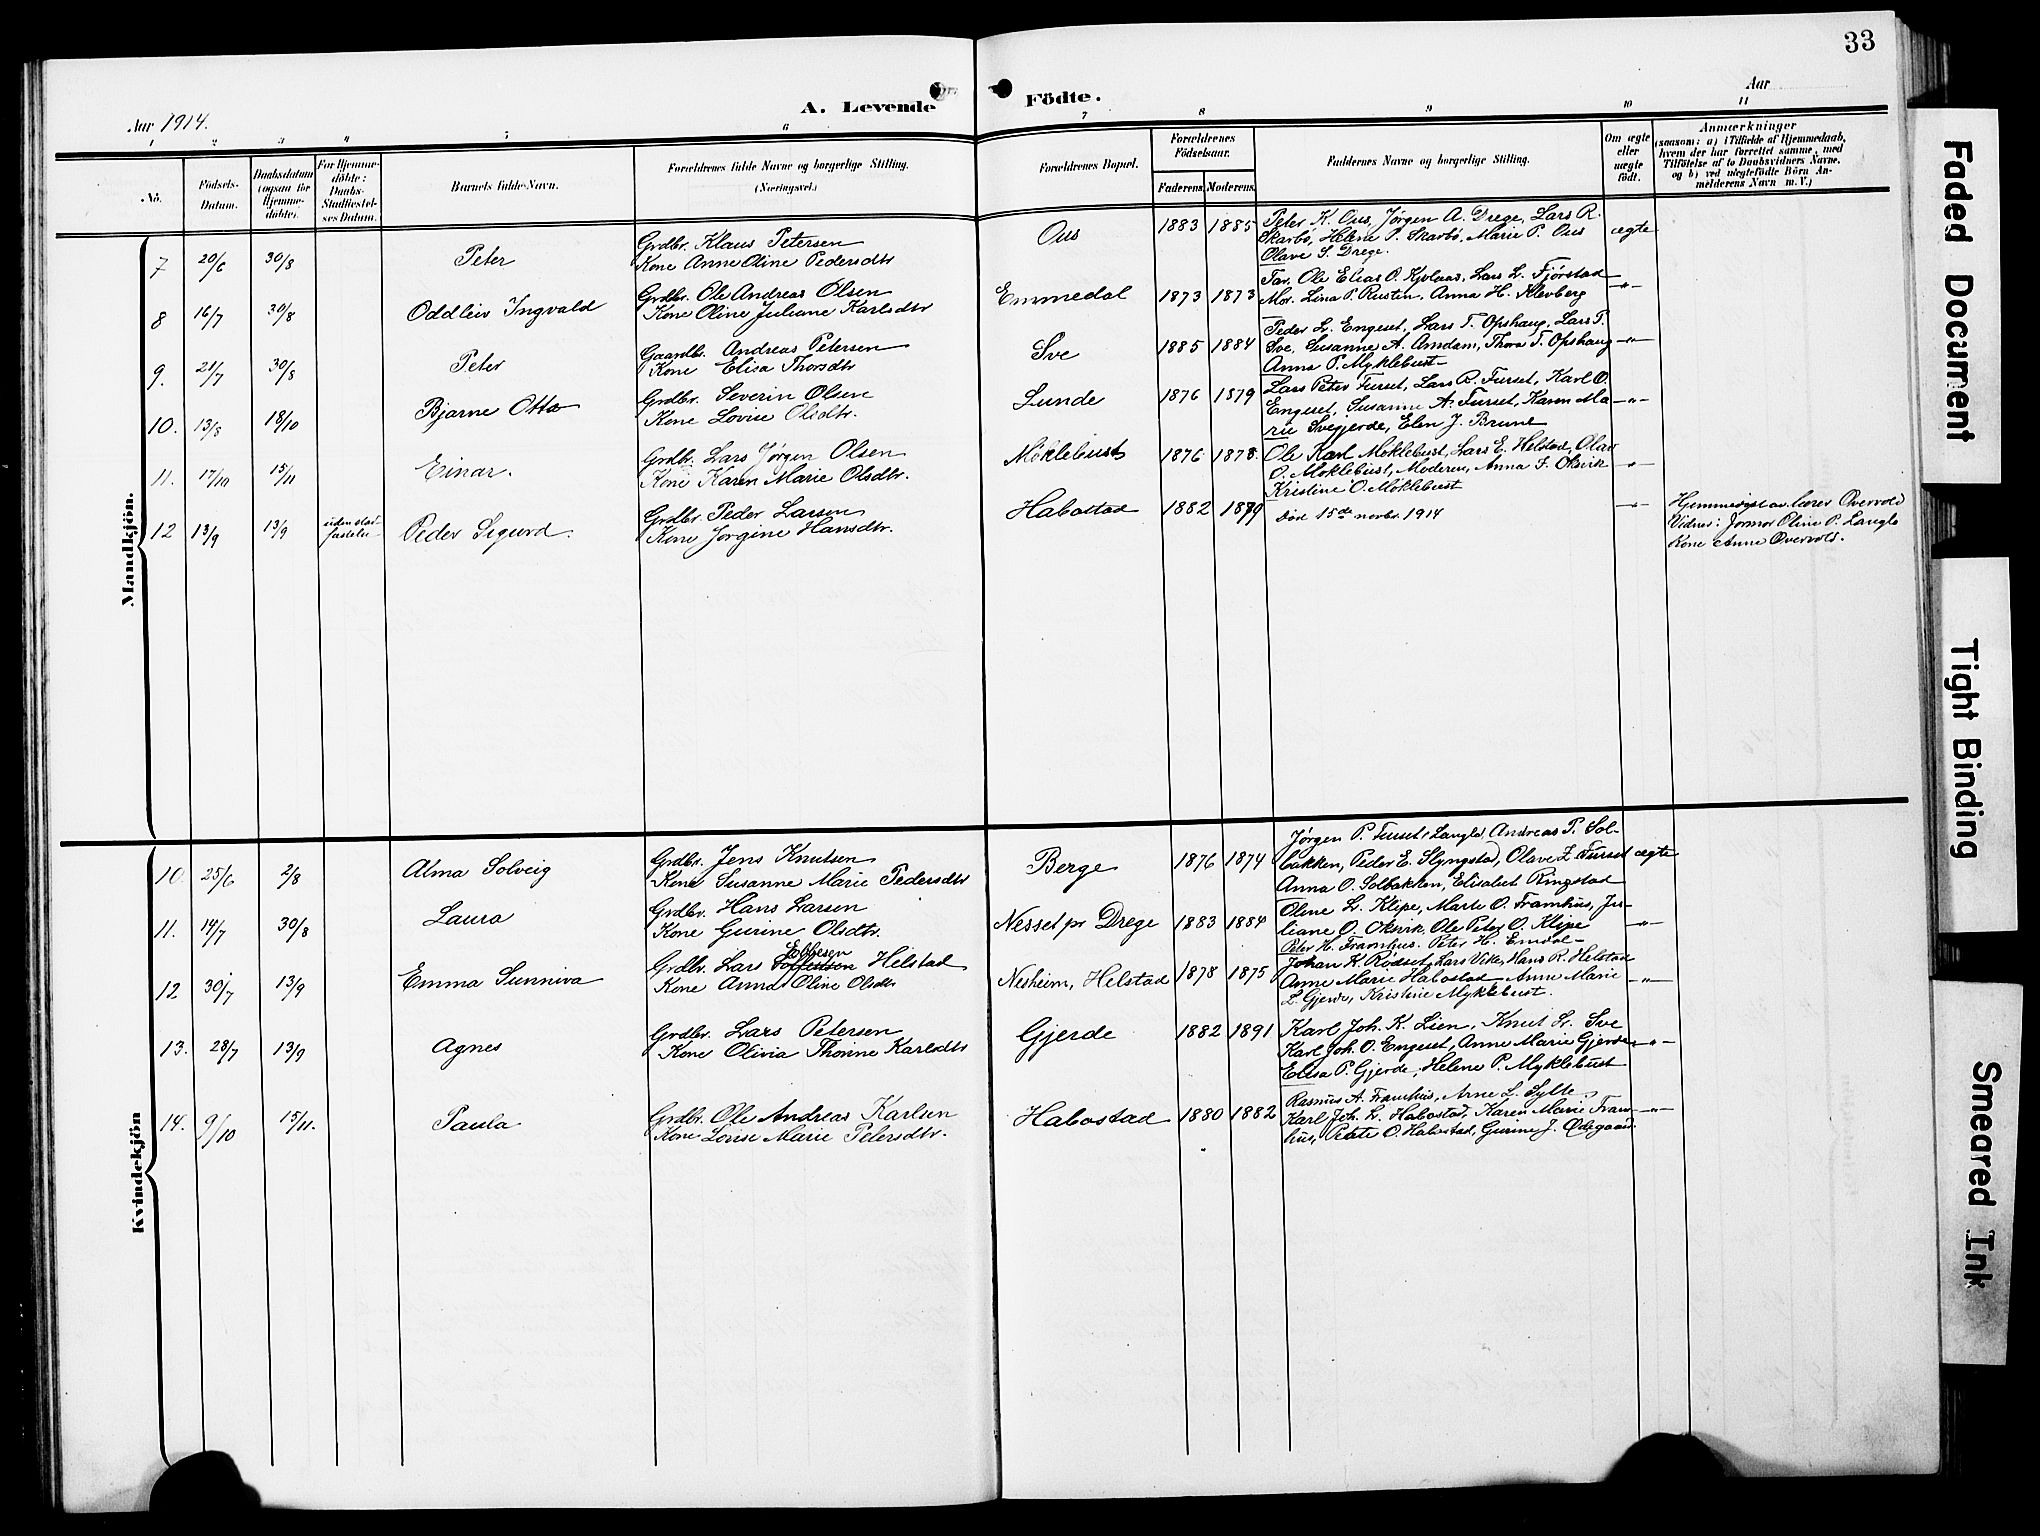 33
Aar 1914.
A. Levende Födte.
Aar
1 2 3 4 5 6 7 8 9 10 11
No.
Födsels-Datum.
Daabsdatum (ogsaa for Hjemme-döbte).
For Hjemme-döbte: Daabs-Stadfæstel-ses Datum.
Barnets fulde Navn.
Forældrenes fulde Navne og borgerlige Stilling.
(Næringsvei.)
Forældrenes Bopæl.
Forældrenes Födselsaar.
Faderens. Moderens.
Faddernes Navne og borgerlige Stilling.
Om ægte eller uægte födt.
Anmærkninger
(saasom: a) i Tilfælde af Hjemmedaab, hvem der har forrettet samme, med Tilföielse af to Daabsvidners Navne, og b) ved uægtefödte Börn Anmelderens Navn m. V.)
Mandkjön.
7 20/6 30/8 Peter
Grdbr. Klaus Petersen
Kone Anne Oline Pedersdtr
Ous 1883 1885
Peter K. Ous, Jørgen A. Drege, Lars R.
Skarbø, Helene P. Skarbø, Marie P. Ous
Olave S. Drege.
ægte
8 16/7 30/8 Oddleiv Ingvald
Grdbr. Ole Andreas Olsen
Kone Oline Juliane Karlsdtr
Emmedal 1873 1873
Far. Ole Elias O. Kjølaas, Lars L. Fjørstad
Mor. Lina P. Rusten, Anna H. Klevberg
-"-
9. 21/7 30/8 Peter
Gaardbr. Andreas Petersen
Kone Elisa Thorsdtr
Sve 1885 1884
Peder L. Engeset, Lars T. Opshaug, Lars T.
Sve, Susanne A. Amdam, Thora T. Opshaug
Anna P. Myklebust
-"-
10. 13/8 18/10 Bjarne Otto
Grdbr. Severin Olsen
Kone Lovise Olsdtr.
Lunde 1876 1879
Lars Peter Furset, Lars R. Furset, Karl O.
Engeset, Susanne A. Furset, Karen Ma
rie Svegjerde, Elen J. Brune
-"-
11. 17/10 15/11 Einar.
Grdbr. Lars Jørgen Olsen
Kone Karen Marie Olsdtr.
Møklebust 1876 1878.
Ole Karl Møklebust, Lars E. Helstad, Olav
O. Møklebust, Moderen, Anna F. Oksvik
Kristine O. Møklebust
-"-
12 13/9 13/9 uden stadfæstelse Peder Sigurd.
Grdbr. Peder Larsen
Kone Jørgine Hansdtr.
Habostad 1882 1879
Død 15de novbr. 1914
-"-
Hjemmedøpt av lærer Overvold
Vidner: Jormor Oline P. Langlo
Kone Anne Overvold.
Kvindekjön
10 25/6 2/8 Alma Solveig
Grdbr. Jens Knutsen
Kone Susanne Marie Pedersdtr
Berge 1876 1874
Jørgen P. Furset (Langlo) Andreas P. Sol-
bakken, Peder E. Slyngstad, Olave L. Furset
Anna O. Solbakken, Elisabet Ringstad
ægte
11. 14/7 30/8 Laura
Grdbr. Hans Larsen
Kone Gurine Olsdtr.
Nesset pr Drege 1883 1884
Oline L. Klipe, Marte O. Framhus, Ju-
liane O. Oksvik, Ole Peter O. Klipe
Peter H. Framhus. Peter H. Emdal
-"-
12 30/7 13/9 Emma Sunniva
Grdbr. Lars Ebbesen Helstad
Kone Anna Oline Olsdtr
Nesheim, Helstad 1878 1875
Johan K. Rødset, Lars Vike, Hans R. Helstad
Anne Marie Habostad, Anne Marie
L. Gjerde, Kristine Myklebust.
-"-
13. 28/7 13/9 Agnes
Grdbr. Lars Petersen
Kone Olivia Thorine Karlsdtr
Gjerde 1882 1891
Karl Joh. K. Lien, Knut L. Sve
Karl Joh. O. Engeset, Anne Marie Gjerde
Elisa P. Gjerde, Helene P. Myklebust
-"-
14. 9/10 15/11. Paula
Grdbr. Ole Andreas Karlsen
Kone Lovise Marie Petersdtr.
Habostad 1880 1882
Rasmus A. Framhus, Arne L. Sylte,
Karl Joh. L. Habostad, Karen Marie Fram-
hus, Petate O. Habostad, Gurine J. Ødegaard
-"-
Faded Document
Tight Binding
Smeared Ink